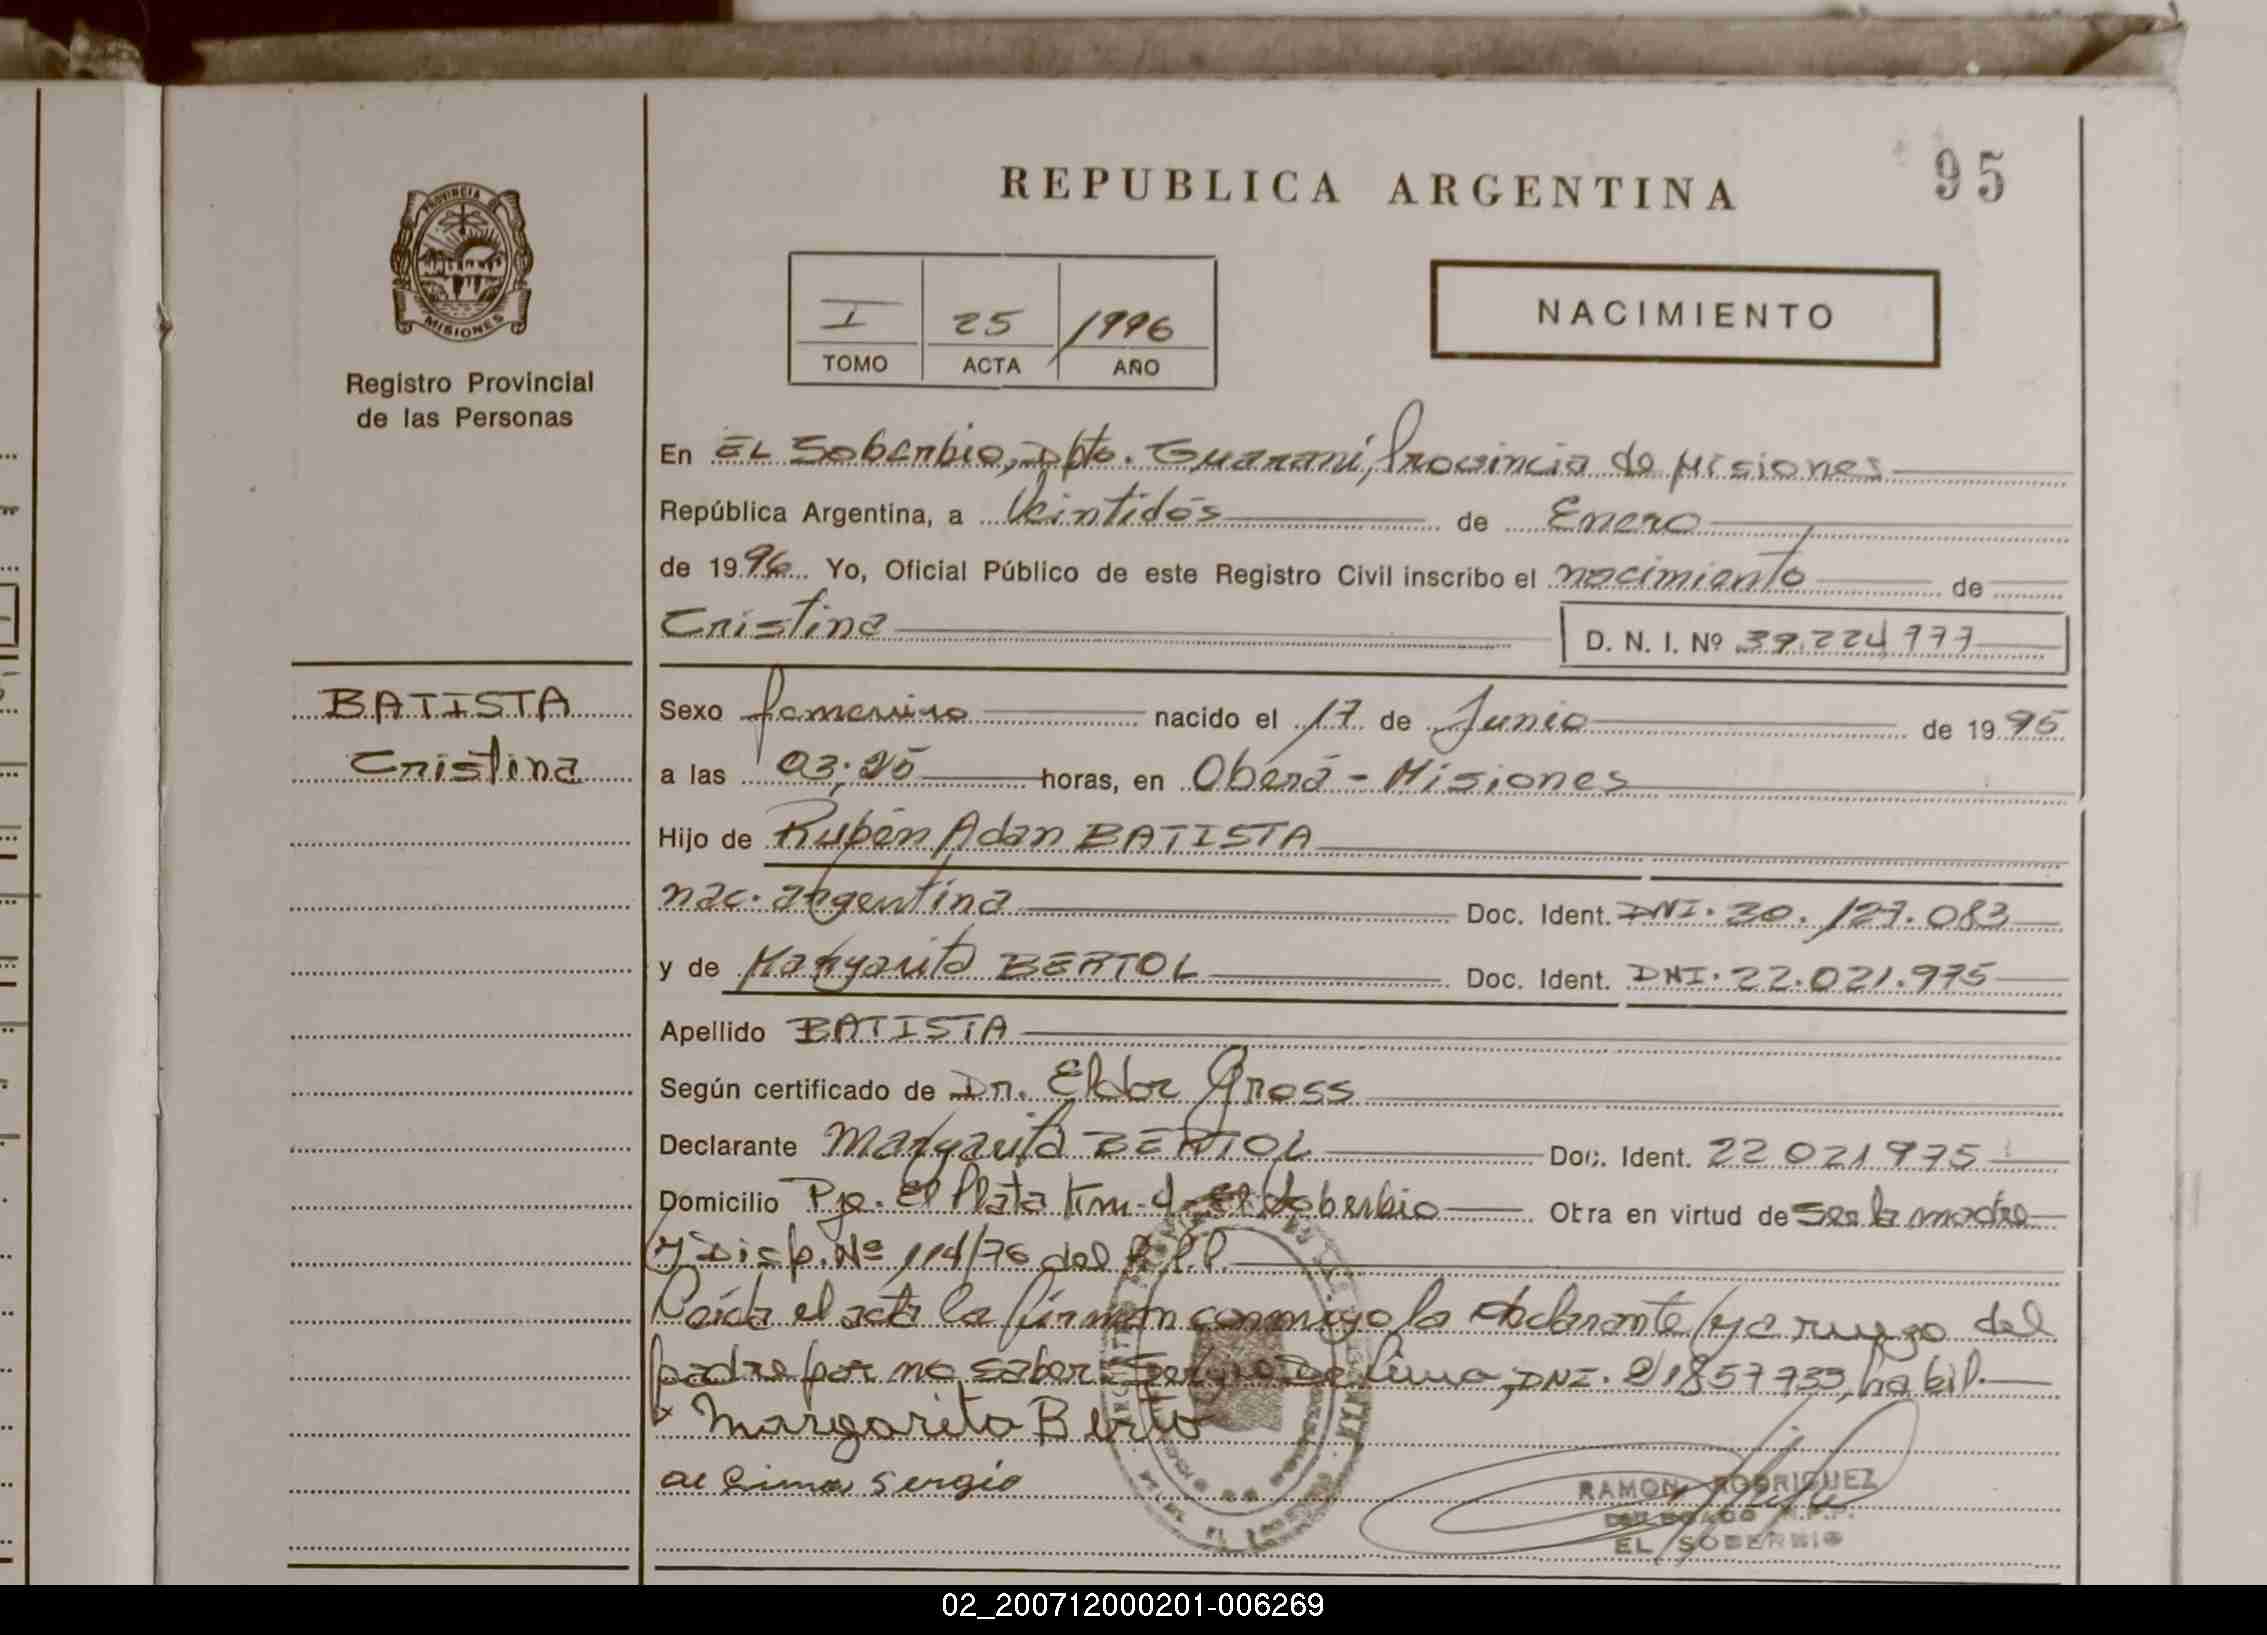 95
REPUBLICA ARGENTINA
PROVINCIA DE
MISIONES
Registro Provincial
de las Personas
I 25 1996
TOMO ACTA AÑO
NACIMIENTO
En EL Soberbio, Dpto. Guaraní, Provincia de Misiones
República Argentina, a Veintidós de Enero
de 1996 Yo, Oficial Público de este Registro Civil inscribo el nacimiento de
Cristina D. N. I. Nº 39.224.977
BATISTA
Cristina
Sexo femenino nacido el 17 de Junio de 1995
a las 03:25 horas, en Oberá - Misiones
Hijo de Rubén Adan BATISTA
nac. argentina Doc. Ident. DNI. 20.127.083
y de Margarita BERTOL Doc. Ident. DNI. 22.021.975
Apellido BATISTA
Según certificado de Dr. Eldor Gross
Declarante Margarita BERTOL Doc. Ident. 22 021 975
Domicilio Pje. El Plata Km. 4 - El Soberbio Otra en virtud de ser la madre
y Disp. Nº 114/76 del R.P.P.
Leída el acta la firman conmigo la declarante y a ruego del
padre por no saber Sergio De Lima, DNI. 21857733, habil.
x Margarita Berto
de Lima Sergio
RAMON RODRIGUEZ
DELEGADO R.P.P.
EL SOBERBIO
02_200712000201-006269